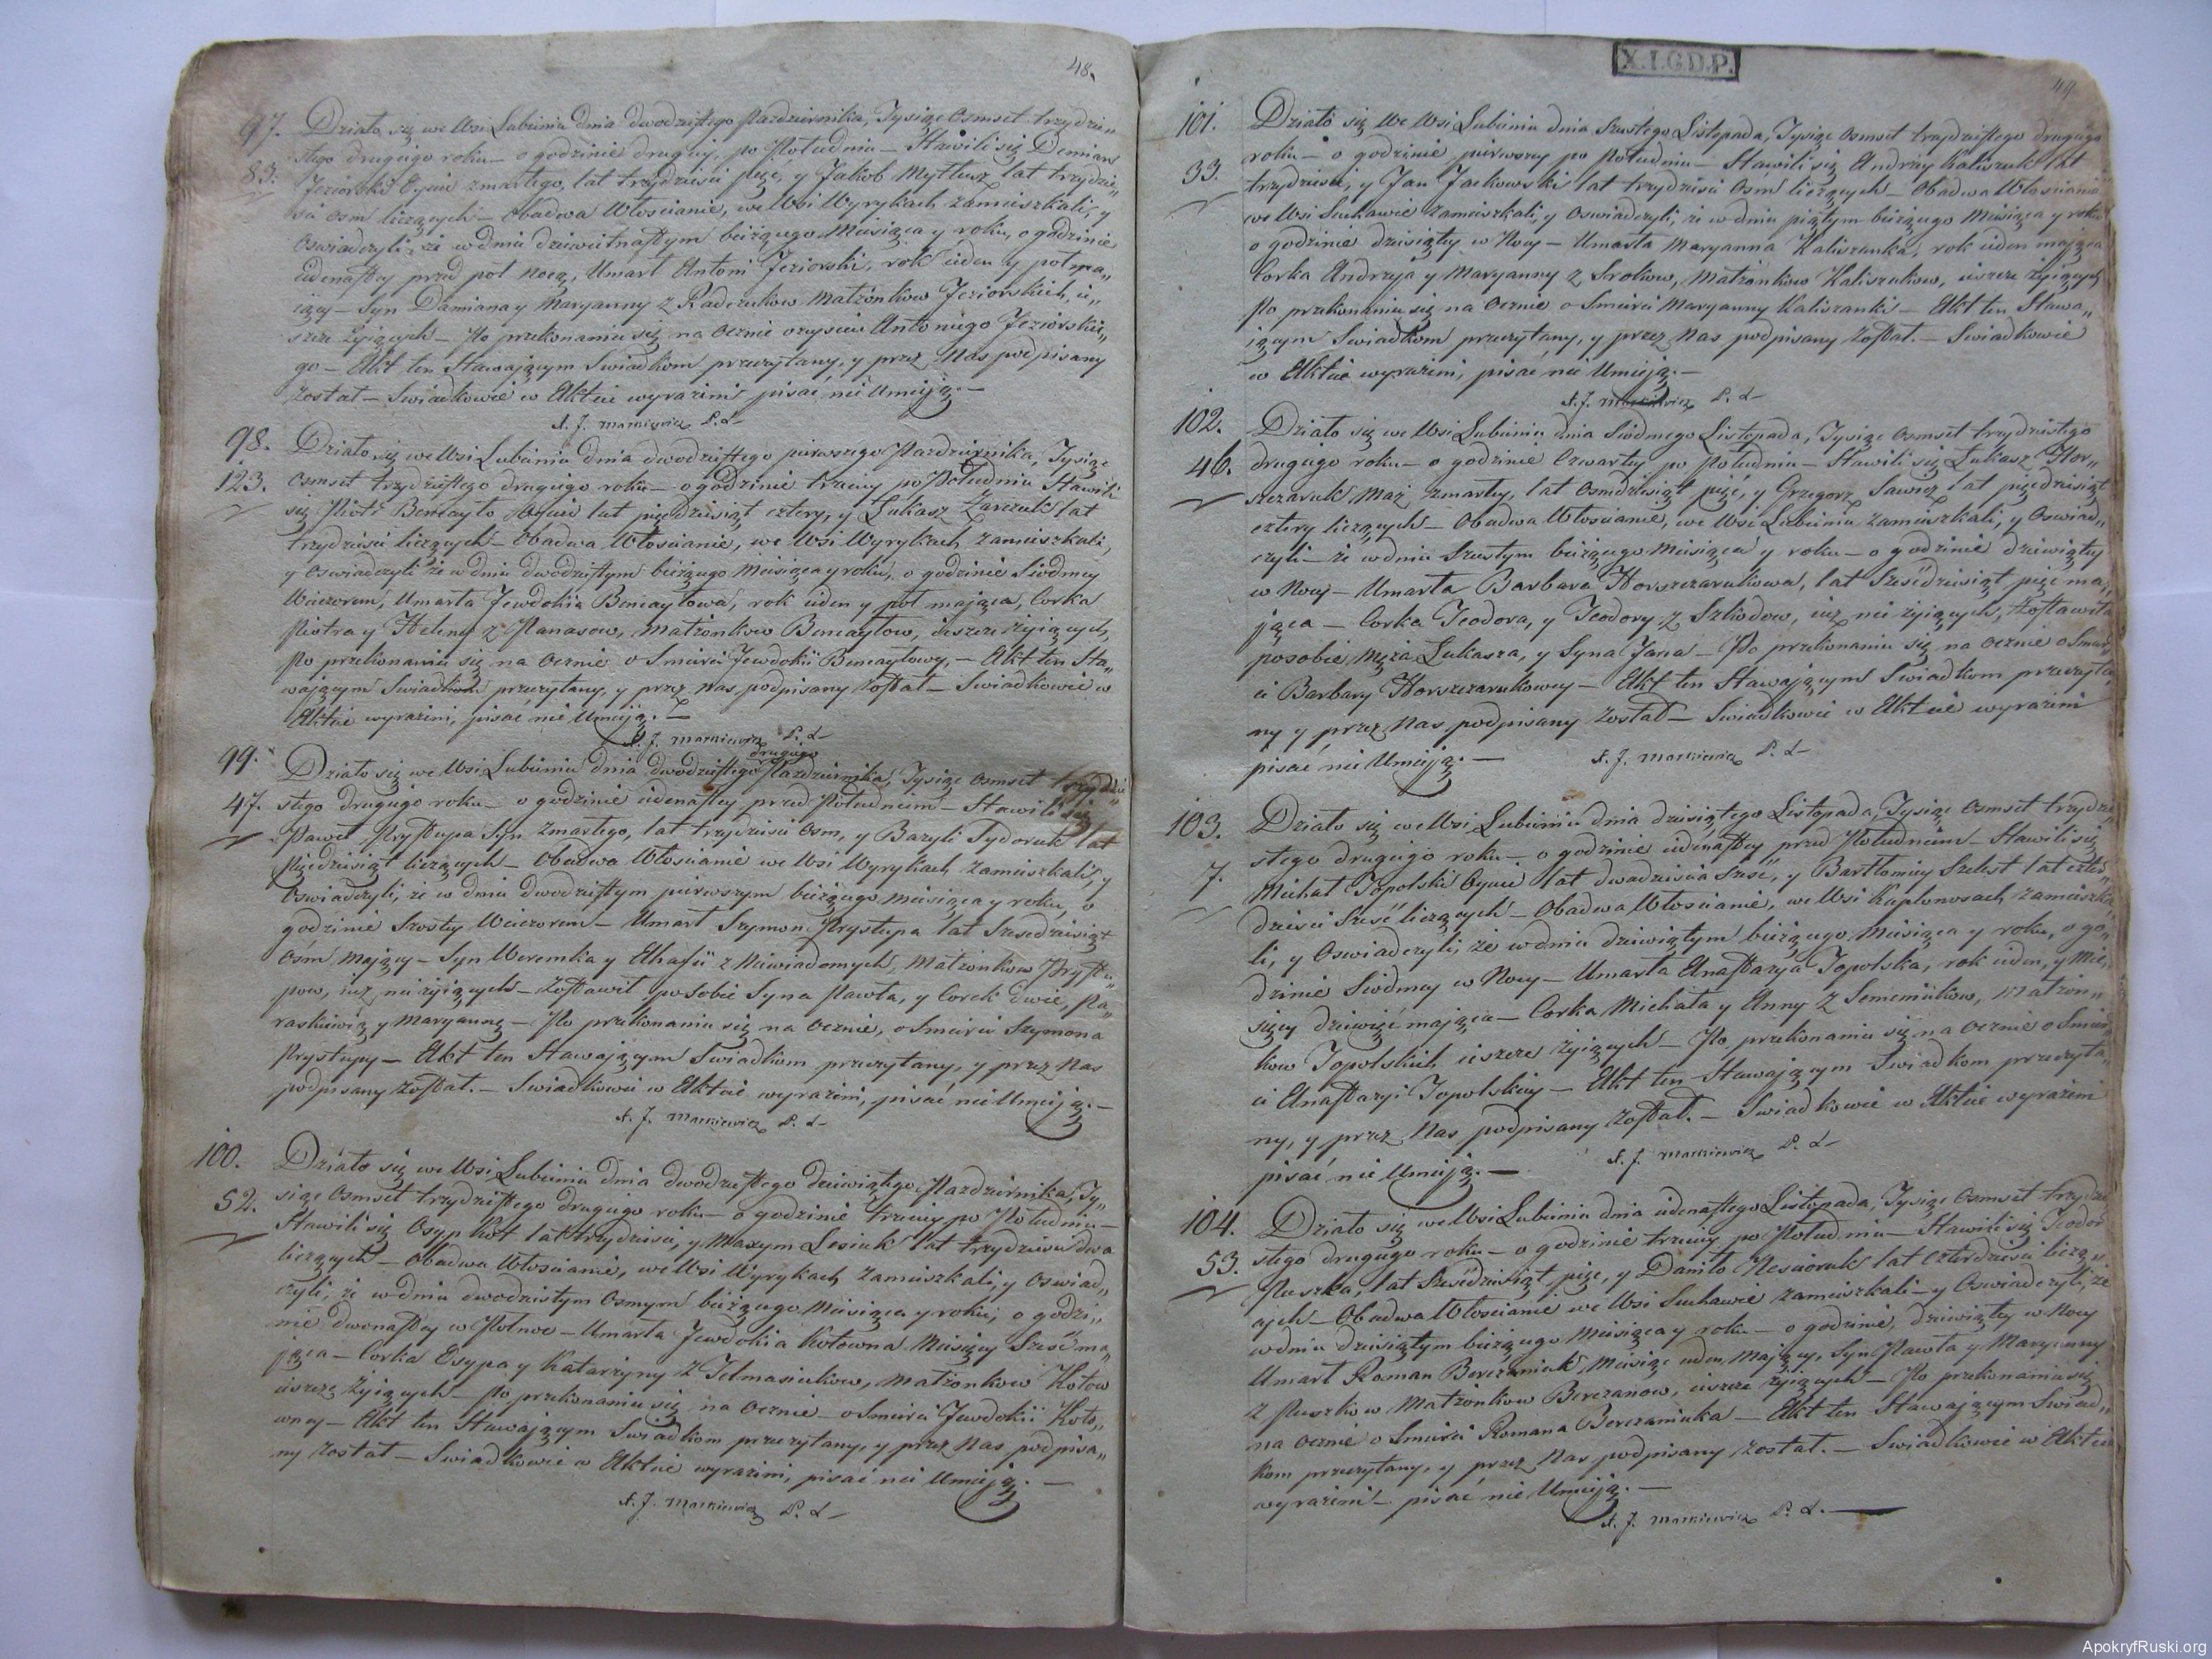 48.
97. Działo się we Wsi Lubiniu dnia dwódziestego Pazdziernika, Tysiąc Osmset trzydzie„
83. stego drugiego roku — o godzinie drugiey, po Południu — Stawili się Demian
Jeziorski Oyciec zmarłego, lat trzydzieści pięć, y Jakób Mytlusz lat trzydzie„
ści Osm liczących — Obadwa Włoscianie, we Wsi Wyrykach zamieszkali, y
Oswiadczyli, że w dniu dziewiętnastym bieżącego Miesiąca y roku, o godzinie
iedenastey przed pół nocą, Umarł Antoni Jeziorski, rok ieden y pół ma„
iący — Syn Damiana y Maryanny z Radczuków Małżonków Jeziorskich, ie„
szcze żyiących — Po przekonaniu się na Ocznie o zysciu Antoniego Jeziorskie„
go — Akt ten Stawaiącym Swiadkom przeczytany, y przez Nas podpisany
został — Swiadkowie w Akcie wyrażeni pisać nie Umieją. —
X. J. Markiewicz P. L —
98. Działo się we Wsi Lubiniu dnia dwódziestego pierwszego Pazdziernika, Tysiąc
123. Osmset trzydziestego drugiego roku — o godzinie trzeciey po Południu Stawili
się Piotr Bencayło Oyciec lat pięcdziesiąt cztery, y Łukasz Zarczuk lat
trzydzieści liczących — Obadwa Włoscianie, we Wsi Wyrykach zamieszkali,
y Oswiadczyli że w dniu dwódziestym bieżącego Miesiąca y roku, o godzinie Siódmey
Wieczorem, Umarła Jewdokia Bencayłowa, rok ieden y pół maiąca, Corka
Piotra y Heleny z Panasow, Małżonkow Bencayłow, ieszcze żyiących,
Po przekonaniu się na Ocznie o Smierci Jewdokii Bencayłowy, — Akt ten Sta„
waiącym Swiadkom przeczytany, y przez Nas podpisany został — Swiadkowie w
Akcie wyrażeni, pisać nie Umieją. —
X. J. Markiewicz P. L —
drugiego
99. Działo się we Wsi Lubiniu dnia dwódziestego Pazdziernika, Tysiąc Osmset trzydzie
47. stego drugiego roku — o godzinie iedenastey przed Południem — Stawili się
Paweł Prystupa Syn Zmarłego, lat trzydzieści Osm, y Bazyli Tydoruk lat
Pięcdziesiąt liczących — Obadwa Włoscianie we Wsi Wyrykach zamieszkali, y
Oswiadczyli, że w dniu dwódziestym pierwszym bieżącego Miesiąca y roku, o
godzinie Szosty Wieczorem — Umarł Szymon Prystupa lat Szescdziesiąt
Osm maiący — Syn Weremka y Ahafii z Niewiadomych, Małżonkow Prystu„
pow, iuż nie żyiących — Zostawił po Sobie Syna Pawła, y Corek dwie, Pa„
raskiewią y Maryannę — Po przekonaniu się na Ocznie, o Smierci Szymona
Prystupy — Akt ten Stawaiącym Swiadkom przeczytany, y przez Nas
podpisany Został. — Swiadkowie w Akcie wyrażeni, pisać nie Umieją. —
X. J. Markiewicz P. L —
100. Działo się we Wsi Lubiniu dnia dwódziestego dziewiątego Pazdziernika, Ty„
52. siąc Osmset trzydziestego drugiego roku — o godzinie trzeciey po Południu —
Stawili się Osyp Kot lat trzydzieści, y Maxym Lesiuk lat trzydzieści dwa
liczących — Obadwa Włoscianie, we Wsi Wyrykach zamieszkali, y Oswiad„
czyli, że w dniu dwódziestym Osmym bieżącego Miesiąca y roku, o godzi„
nie dwonastey w Połnoc — Umarła Jewdokia Kotowna Miesięcy Sześć ma„
jąca — Corka Osypa y Katarzyny z Jelmasiukow, Małżonkow Kotow
ieszcze żyiących — Po przekonaniu się na Ocznie — o Smierci Jewdokii Koto„
wney — Akt ten Stawaiącym Swiadkom przeczytany, y przez Nas podpisa„
ny Został — Swiadkowie w Akcie wyrażeni, pisać nie Umieją. —
X. J. Markiewicz P. L —
X.I.G.D.P.
49
101. Działo się We Wsi Lubiniu dnia Szóstego Listopada, Tysiąc Osmset trzydziestego drugiego
33. roku — o godzinie pierwszey po Południu — Stawili się Andrzey Kaliszuk lat
trzydzieści, y Jan Jackowski lat trzydzieści Osm liczących — Obadwa Włoscianie
we Wsi Suchawie zamieszkali, y Oswiadczyli, że w dniu piątym bieżącego Miesiąca y roku
o godzinie dziesiątey w Nocy — Umarła Maryanna Kaliszanka, rok ieden maiąca
Corka Andrzeja y Maryanny z Srokow, Małżonkow Kaliszukow, ieszcze żyiących
Po przekonaniu się na Ocznie o Smierci Maryanny Kaliszanki — Akt ten Stawa„
iącym Swiadkom przeczytany, y przez Nas podpisany został. — Swiadkowie
w Akcie wyrażeni, pisać nie Umieją. —
X. J. Markiewicz P. L —
102. Działo się we Wsi Lubiniu dnia Siódmego Listopada, Tysiąc Osmset trzydziestego
46. drugiego roku — o godzinie Czwartey po Południu — Stawili się Łukasz Hor„
szczaruk Mąż zmarłey, lat Osmdziesiąt pięć, y Grzegorz Sawicz lat pięcdziesiąt
cztery liczących — Obadwa Włoscianie, we Wsi Lubiniu zamieszkali, y Oswiad„
czyli — że w dniu Szostym bieżącego Miesiąca y roku — o godzinie dziewiątey
w Nocy — Umarła Barbara Horszczarukowa, lat Sześćdziesiąt pięć ma„
jąca — Corka Teodora, y Teodory z Szkodow, iuż nie żyiących, Zostawiła
po sobie Męża Łukasza, y Syna Jana — Po przekonaniu się na Ocznie o Smier„
ci Barbary Horszczarukowey — Akt ten Stawaiącym Swiadkom przeczyta„
ny y przez Nas podpisany został — Swiadkowie w Akcie wyrażeni
pisać nie Umieją. —
X. J. Markiewicz P. L —
103. Działo się we Wsi Lubiniu dnia dziesiątego Listopada, Tysiąc Osmset trzydzie„
7. stego drugiego roku — o godzinie iedenastey przed Południem — Stawili się
Michał Topolski Oyciec lat dwadzieścia sześć, y Bartłomiey Szelest lat czter„
dzieści Sześć liczących — Obadwa Włoscianie, we Wsi Kaplonosach zamieszka„
li, y Oswiadczyli, że w dniu dziewiątym bieżącego Miesiąca y roku, o go„
dzinie Siodmey w Nocy — Umarła Anastazya Topolska, rok ieden, y Mie„
sięcy dziewięć maiąca — Corka Michała y Anny z Semeniukow, Małżon„
kow Topolskich ieszcze żyiących — Po przekonaniu się na Ocznie o Smier„
ci Anastazyi Topolskiey — Akt ten Stawaiącym Swiadkom przeczyta„
ny, y przez Nas podpisany Został. — Swiadkowie w Akcie wyrażeni
pisać nie Umieją. —
X. J. Markiewicz P. L —
104. Działo się we Wsi Lubiniu dnia iedenastego Listopada, Tysiąc Osmset trzydzie
53. stego drugiego roku — o godzinie trzeciey po Południu — Stawili się Teodor
Puszka, lat Sześćdziesiąt pięć, y Daniło Nesteruk lat Czterdzieści licząc„
ych — Obadwa Włoscianie we Wsi Suchawie zamieszkali — y Oswiadczyli, że
w dniu dziesiątym bieżącego Miesiąca y roku — o godzinie, dziewiątey w Nocy
Umarł Roman Berezaniuk, Miesiąc ieden Maiący, Syn Pawła y Maryanny
z Puszków Małżonkow Berezanow, ieszcze żyiących — Po przekonaniu się
na Ocznie o Smierci Romana Berezaniuka — Akt ten Stawaiącym Swiad„
kom przeczytany, y przez Nas podpisany, został. — Swiadkowie w Akcie
wyrażeni — pisać nie Umieją. —
X. J. Markiewicz P. L. —
ApokryfRuski.org